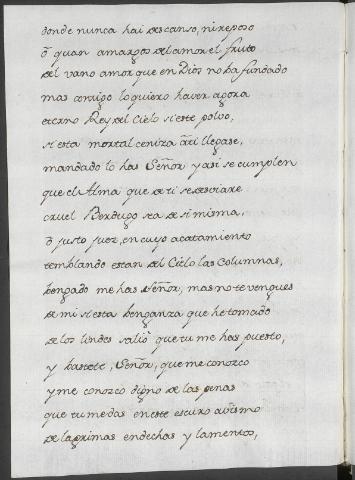 donde nunca hai descanso, ni reposo
ò quan amargos del amor el fruto
del vano amor que en Dios no ha fundado
mas comigo lo quiero haver agora
eterno Rey del Cielo si este polvo,
si esta mortal ceniza à ti llegase,
mandado lo has Señor y asi se cumplen
que el Alma que de ti se desviare
cruel Berdugo sea de si misma,
ò justo juez, en cuyo acatamiento
temblando estan del Cielo las columnas,
bengado me has Señor, mas no te vengues
de mi si esta benganza que he tomado
de los lindes salió que tu me has puesto,
y bastete, Señor, que me conozco
y me conozco digno de las penas
que tu me das en este escuro avismo
de lagrimas endechas y lamentos,